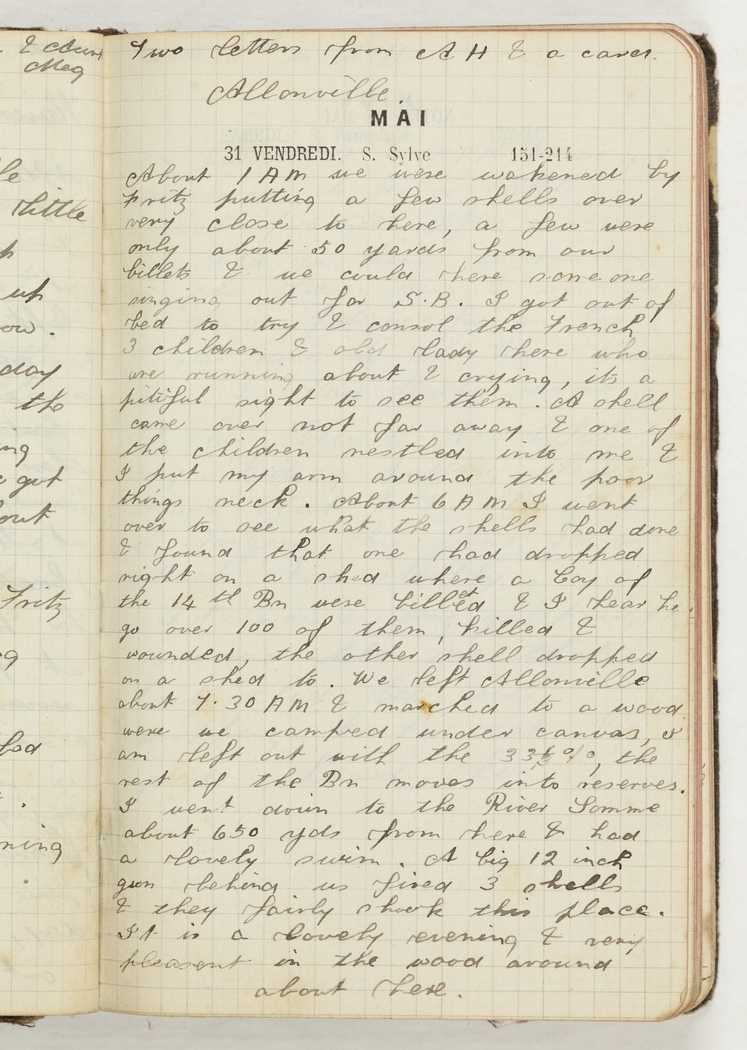 & Aunt
Meg
le
little
h
up
ow.
day
the
ing
got
out
Fritz
g
had
.
ning
.
Two letters from A H & a card.
Allonville.
MAI
31 VENDREDI. S. Sylve 151-214
About 1 AM we were wakened by
Fritz putting a few shells over
very close to here, a few were
only about 50 yards from our
billets & we could here some one
singing out for S.B. I got out of
bed to try & consol the French
3 children & old lady here who
are running about & crying, its a
pitiful sight to see them. A shell
came over not far away & one of
the children nestled into me &
I put my arm around the poor
things neck. About 6 AM I went
over to see what the shells had done
& found that one had dropped
right on a shed where a Coy of
the 14th Bn were billeted & I hear he
go over 100 of them, killed &
wounded, the other shell dropped
on a shed to. We left Allonville
about 7.30 AM & marched to a wood
were we camped under canvas, I
am left out with the 33⅓%, the
rest of the Bn moves into reserves.
I went down to the River Somme
about 650 yds from here & had
a lovely swim. A big 12 inch
gun behind us fired 3 shells
& they fairly shook this place.
It is a lovely evening & very
pleasent in the wood around
about here.